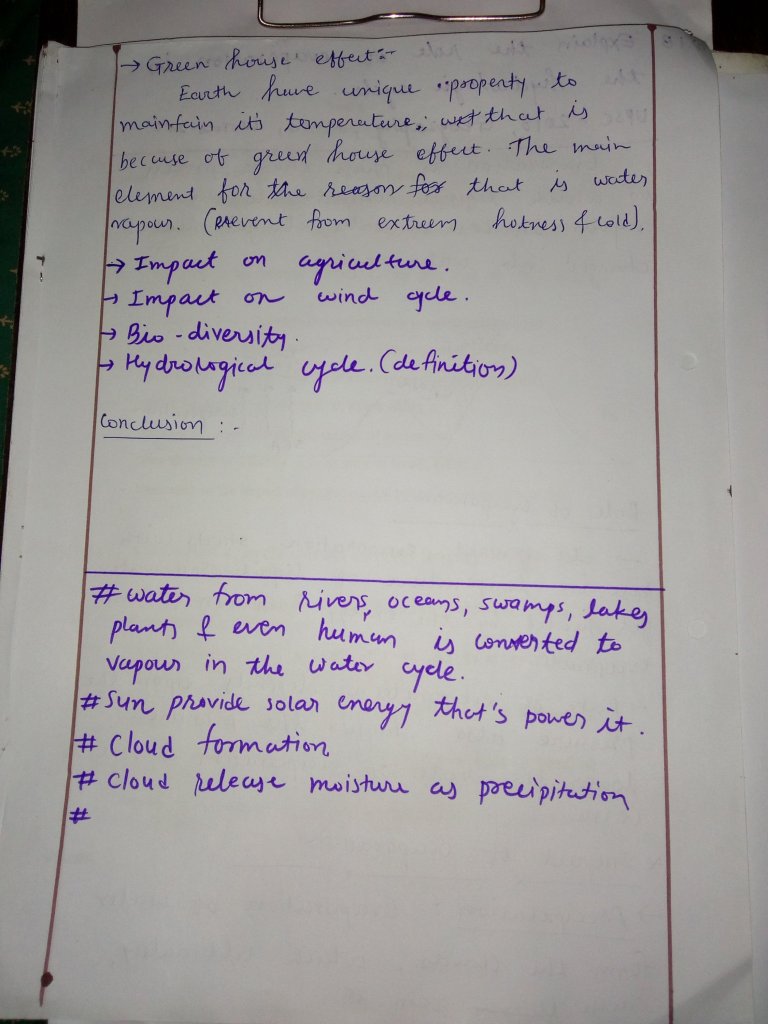 → Green house effect:-
Earth have unique property to
maintain it's temperature, that is
because of green house effect. The main
element for the reason for that is water
vapour. (prevent from extreem hotness & cold).
→ Impact on agriculture.
→ Impact on wind cycle.
→ Bio-diversity.
→ Hydrological cycle. (definition)
Conclusion :-
# water from rivers, oceans, swamps, lakes
plants & even human is converted to
vapour in the water cycle.
# Sun provide solar energy that's power it.
# Cloud formation
# Cloud release moisture as precipitation
#